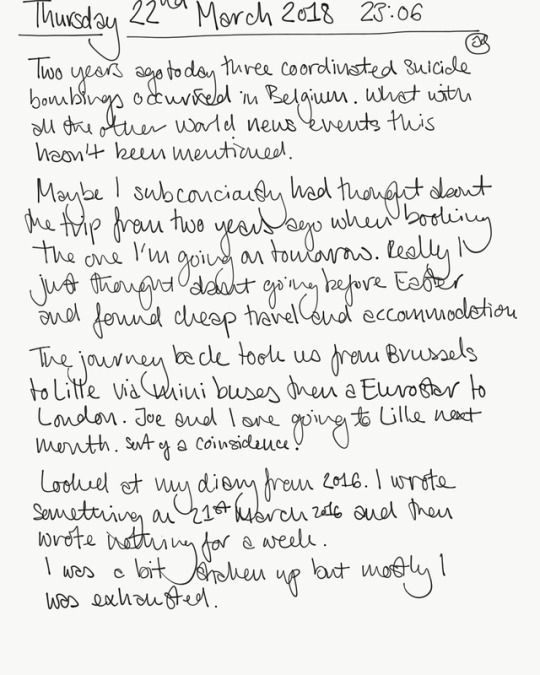 Thursday 22nd March 2018 23:06
Two years ago today three coordinated suicide
bombings occurred in Belgium. What with
all the other world news events this
hasn't been mentioned.
Maybe I subconciously had thought about
the trip from two years ago when booking
the one I'm going on tomorrow. Really I
just thought about going before Easter
and found cheap travel and accommodation
The journey back took us from Brussels
to Lille via mini buses then a Eurostar to
London. Joe and I are going to Lille next
month. Sort of a coinsidence?
Looked at my diary from 2016. I wrote
something on 21st March 2016 and then
wrote nothing for a week.
I was a bit shaken up but mostly I
was exhausted.